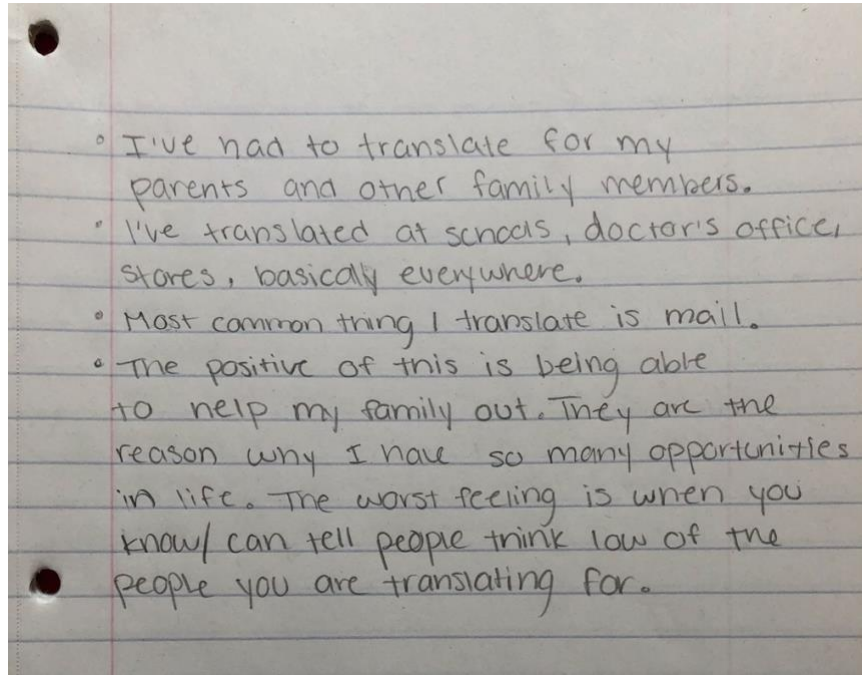 • I've had to translate for my
parents and other family members.
• I've translated at schools, doctor's office,
stores, basically everywhere.
• Most common thing I translate is mail.
• The positive of this is being able
to help my family out. They are the
reason why I have so many opportunities
in life. The worst feeling is when you
know/can tell people think low of the
people you are translating for.